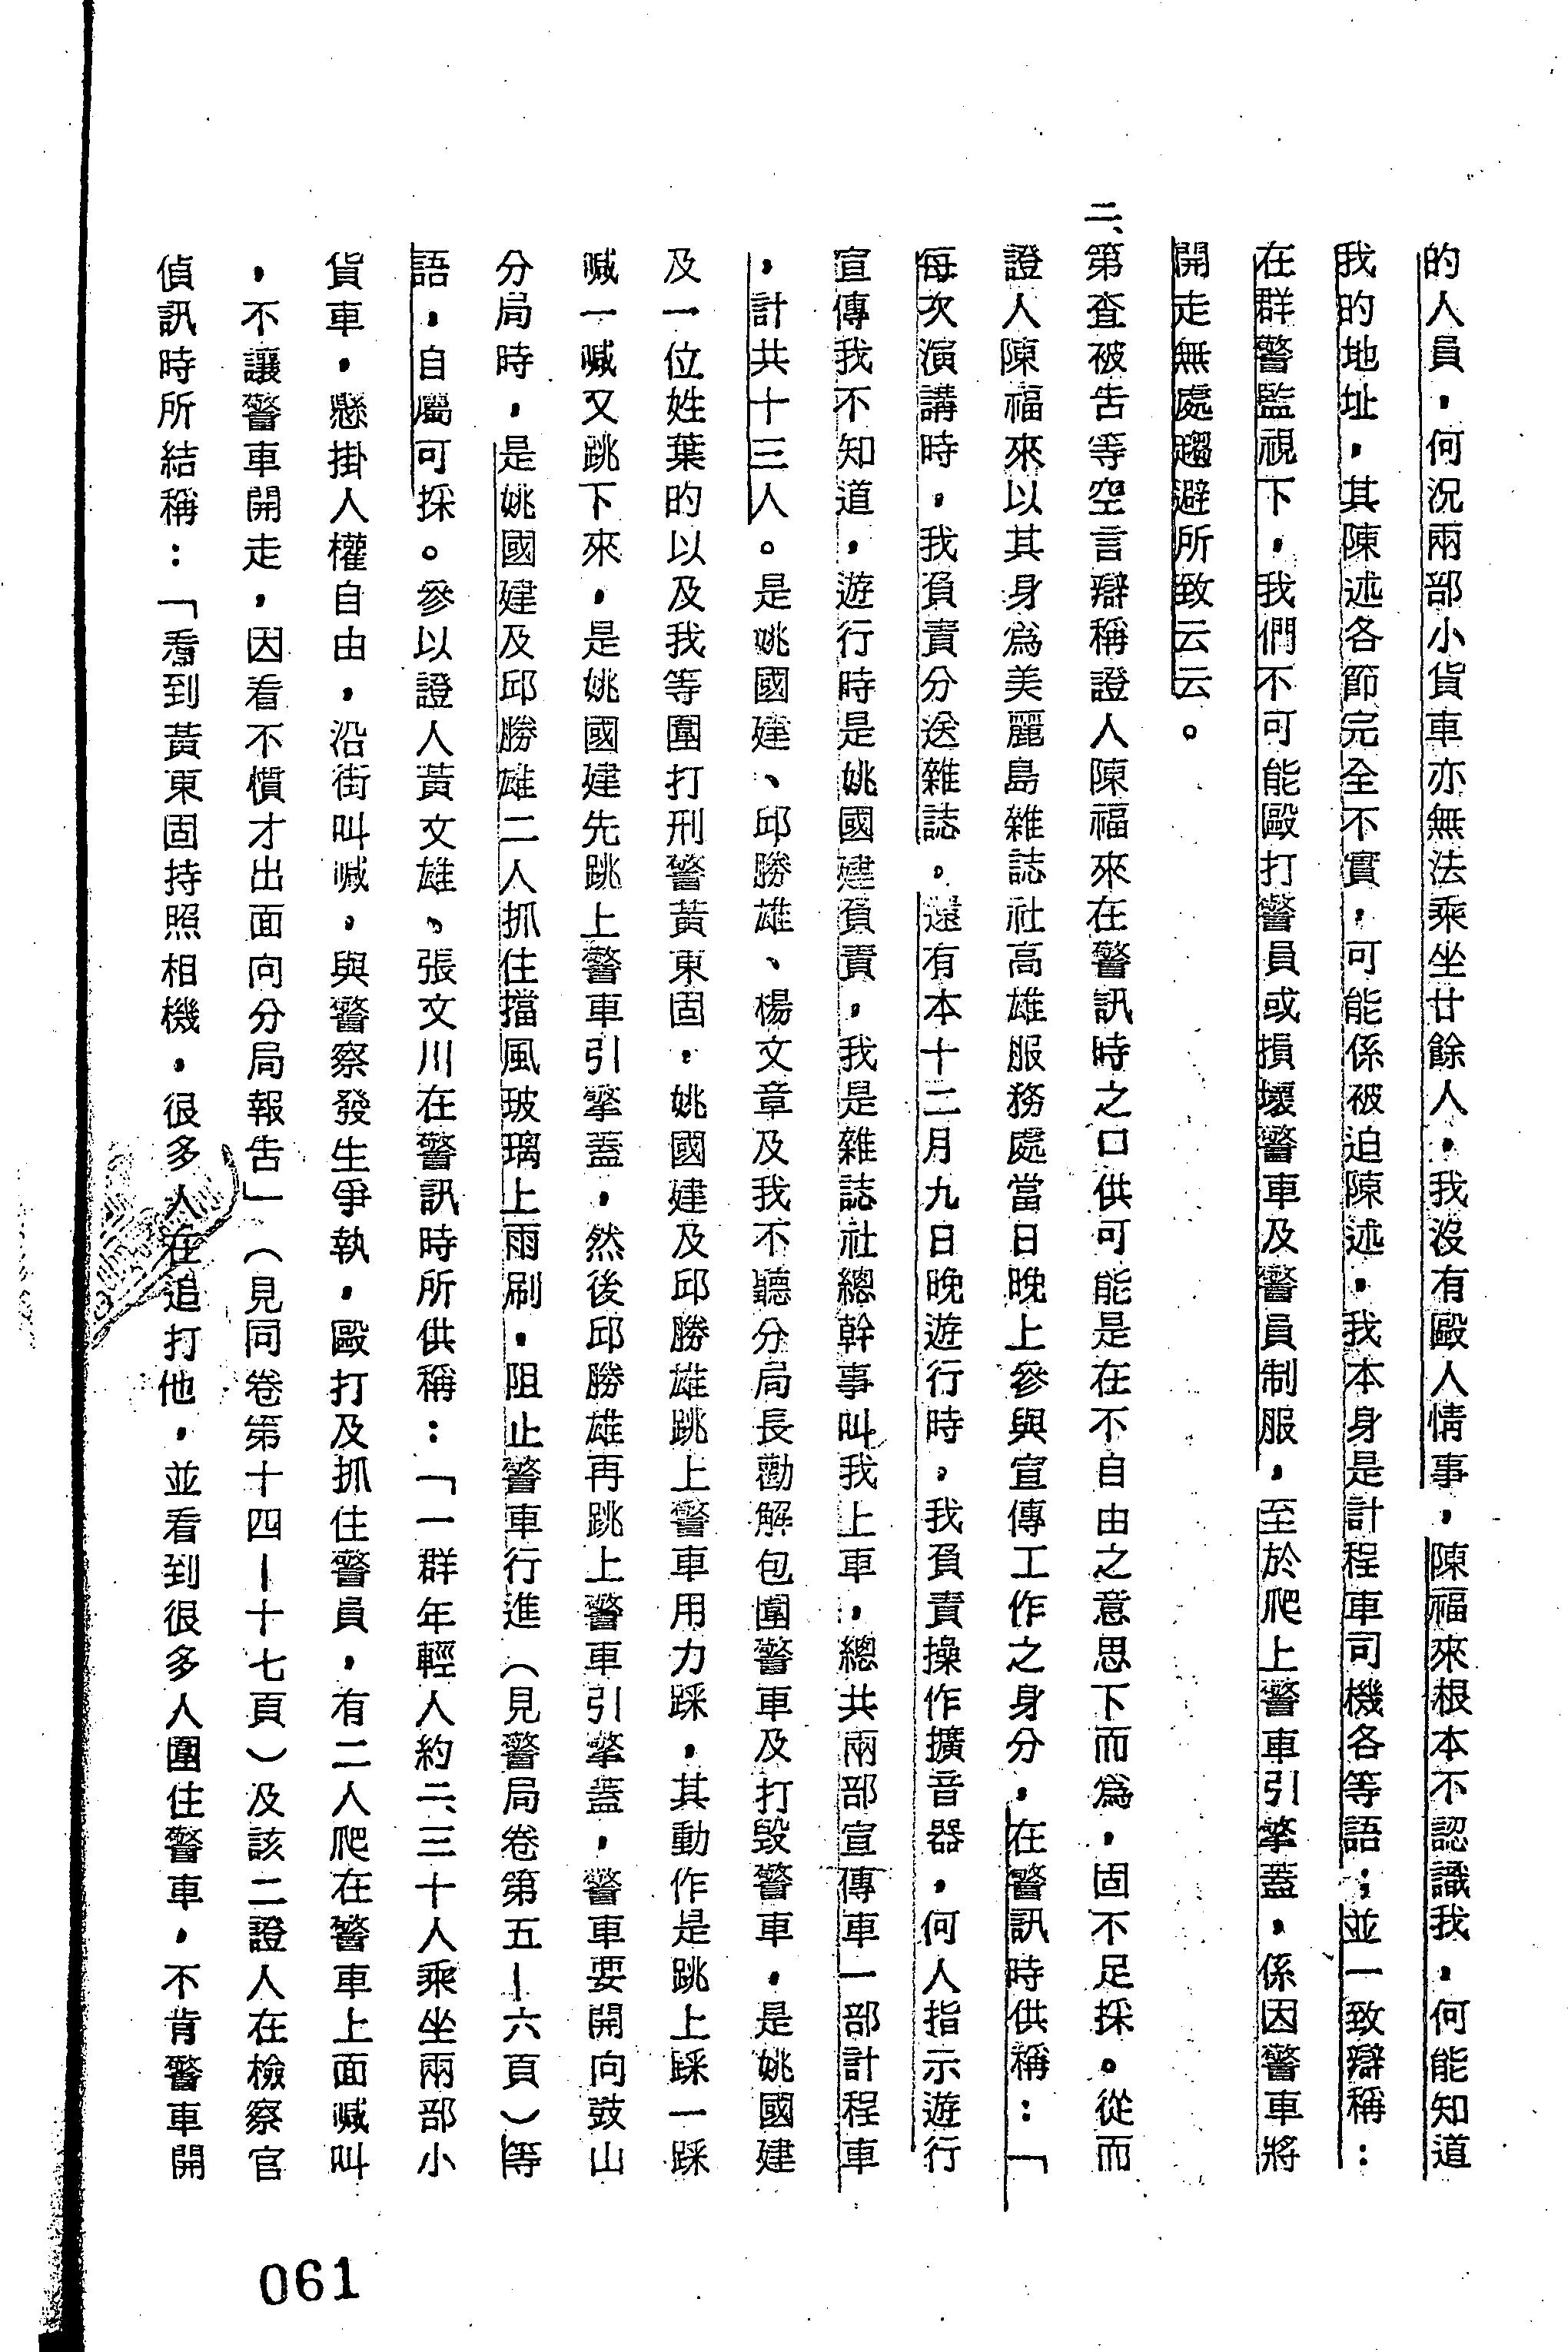 的人員，何況兩部小貨車亦無法乘坐廿餘人，我沒有毆人情事，陳福來根本不認識我，何能知道
我的地址，其陳述各節完全不實，可能係被迫陳述，我本身是計程車司機各等語；並一致辯稱：
在群警監視下，我們不可能毆打警員或損壞警車及警員制服，至於爬上警車引擎蓋，係因警車將
開走無處趨避所致云云。
二、第查被告等空言辯稱證人陳福來在警訊時之口供可能是在不自由之意思下而爲，固不足採。從而
證人陳福來以其身爲美麗島雜誌社高雄服務處當日晚上參與宣傳工作之身分，在警訊時供稱：「
每次演講時，我負責分送雜誌。還有本十二月九日晚遊行時，我負責操作擴音器，何人指示遊行
宣傳我不知道，遊行時是姚國建負責，我是雜誌社總幹事叫我上車，總共兩部宣傳車一部計程車
，計共十三人。是姚國建、邱勝雄、楊文章及我不聽分局長勸解包圍警車及打毀警車，是姚國建
及一位姓葉的以及我等圍打刑警黃東固，姚國建及邱勝雄跳上警車用力踩，其動作是跳上踩一踩
喊一喊又跳下來，是姚國建先跳上警車引擎蓋，然後邱勝雄再跳上警車引擎蓋，警車要開向鼓山
分局時，是姚國建及邱勝雄二人抓住擋風玻璃上雨刷，阻止警車行進（見警局卷第五－六頁）等
語，自屬可採。參以證人黃文雄、張文川在警訊時所供稱：「一群年輕人約二、三十人乘坐兩部小
貨車，懸掛人權自由，沿街叫喊，與警察發生爭執，毆打及抓住警員，有二人爬在警車上面喊叫
，不讓警車開走，因看不慣才出面向分局報告」（見同卷第十四－十七頁）及該二證人在檢察官
偵訊時所結稱：「看到黃東固持照相機，很多人在追打他，並看到很多人圍住警車，不肯警車開
061